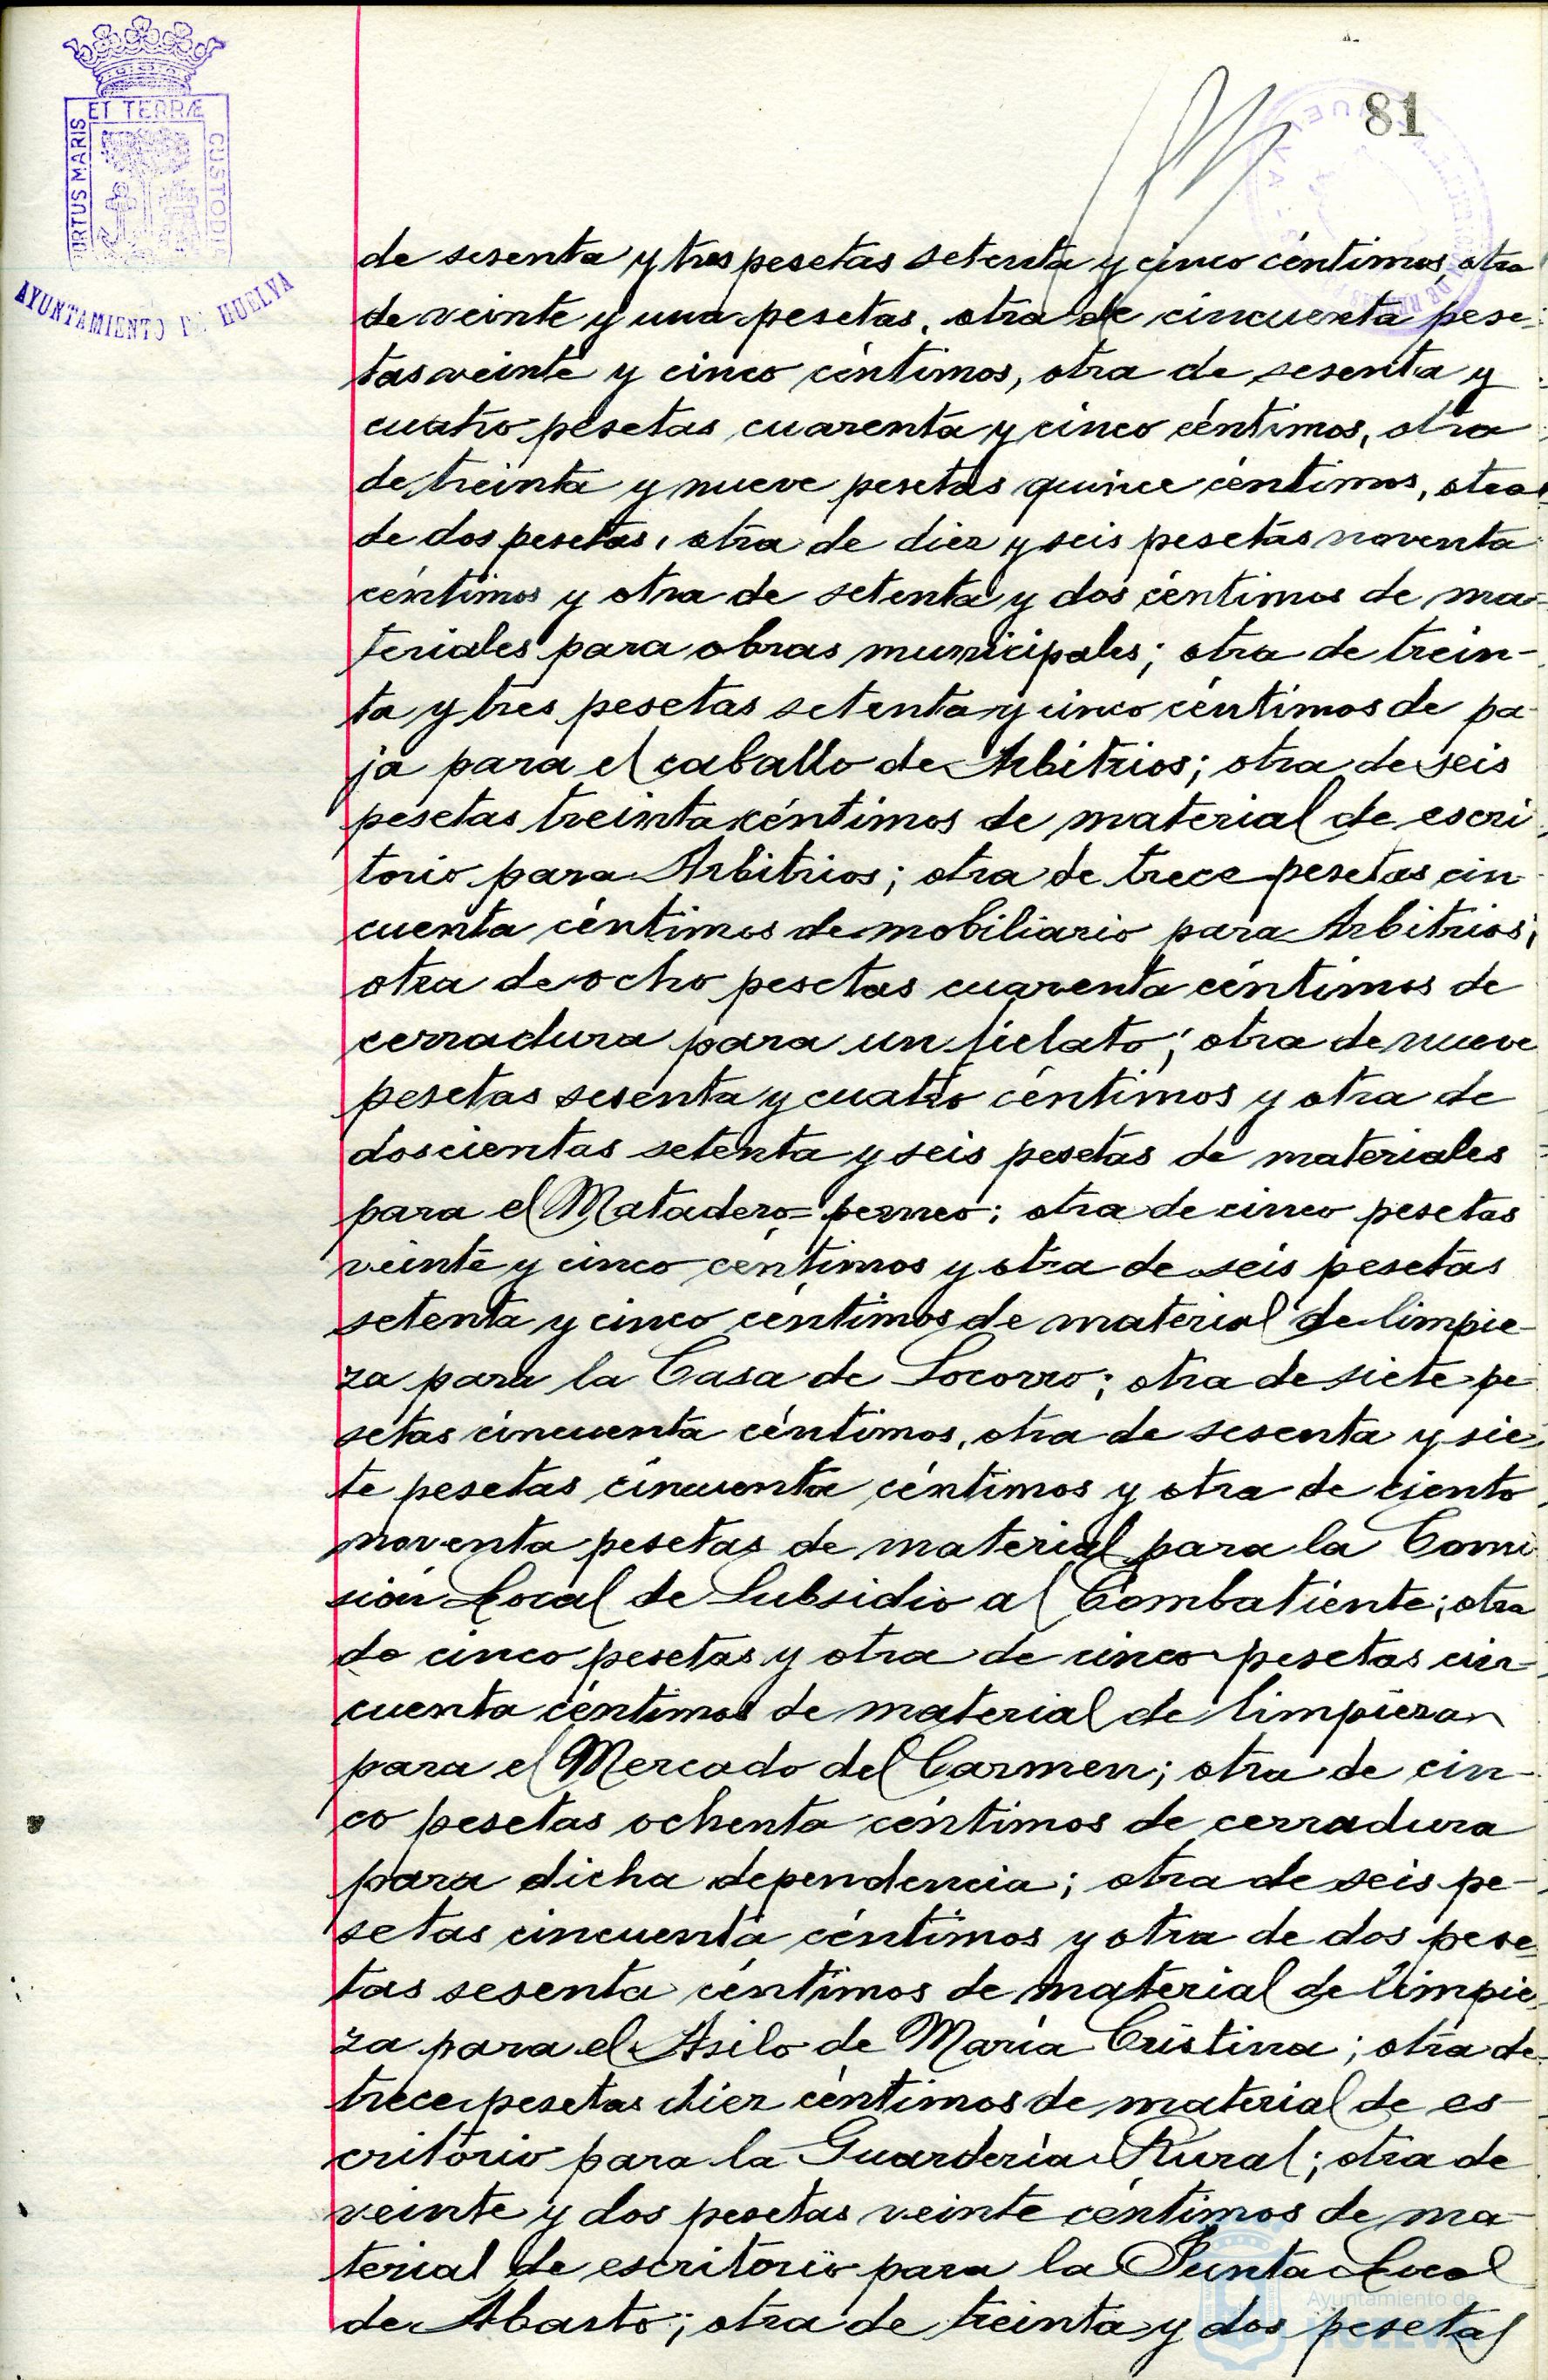 81
ET TERRÆ
PORTUS MARIS
CUSTODIA
AYUNTAMIENTO DE HUELVA
de sesenta y tres pesetas setenta y cinco céntimos, otra
de veinte y una pesetas, otra de cincuenta pese-
tas veinte y cinco céntimos, otra de sesenta y
cuatro pesetas cuarenta y cinco céntimos, otra
de treinta y nueve pesetas quince céntimos, otra
de dos pesetas, otra de diez y seis pesetas noventa
céntimos y otra de setenta y dos céntimos de ma-
teriales para obras municipales; otra de trein-
ta y tres pesetas setenta y cinco céntimos de pa-
ja para el caballo de Arbitrios; otra de seis
pesetas treinta céntimos de material de escri-
torio para Arbitrios; otra de trece pesetas cin-
cuenta céntimos de mobiliario para Arbitrios;
otra de ocho pesetas cuarenta céntimos de
cerradura para un fielato; otra de nueve
pesetas sesenta y cuatro céntimos y otra de
doscientas setenta y seis pesetas de materiales
para el Matadero=perneo; otra de cinco pesetas
veinte y cinco céntimos y otra de seis pesetas
setenta y cinco céntimos de material de limpie-
za para la Casa de Socorro; otra de siete pe-
setas cincuenta céntimos, otra de sesenta y sie-
te pesetas cincuenta céntimos y otra de ciento
noventa pesetas de material para la Comi-
sión Local de Subsidio al Combatiente; otra
de cinco pesetas y otra de cinco pesetas cin-
cuenta céntimos de material de limpieza
para el Mercado del Carmen; otra de cin-
co pesetas ochenta céntimos de cerradura
para dicha dependencia; otra de seis pe-
setas cincuenta céntimos y otra de dos pese-
tas sesenta céntimos de material de limpie-
za para el Asilo de María Cristina; otra de
trece pesetas diez céntimos de material de es-
critorio para la Guardería Rural; otra de
veinte y dos pesetas veinte céntimos de ma-
terial de escritorio para la Junta Local
de Abasto; otra de treinta y dos pesetas
Ayuntamiento de
HUELVA